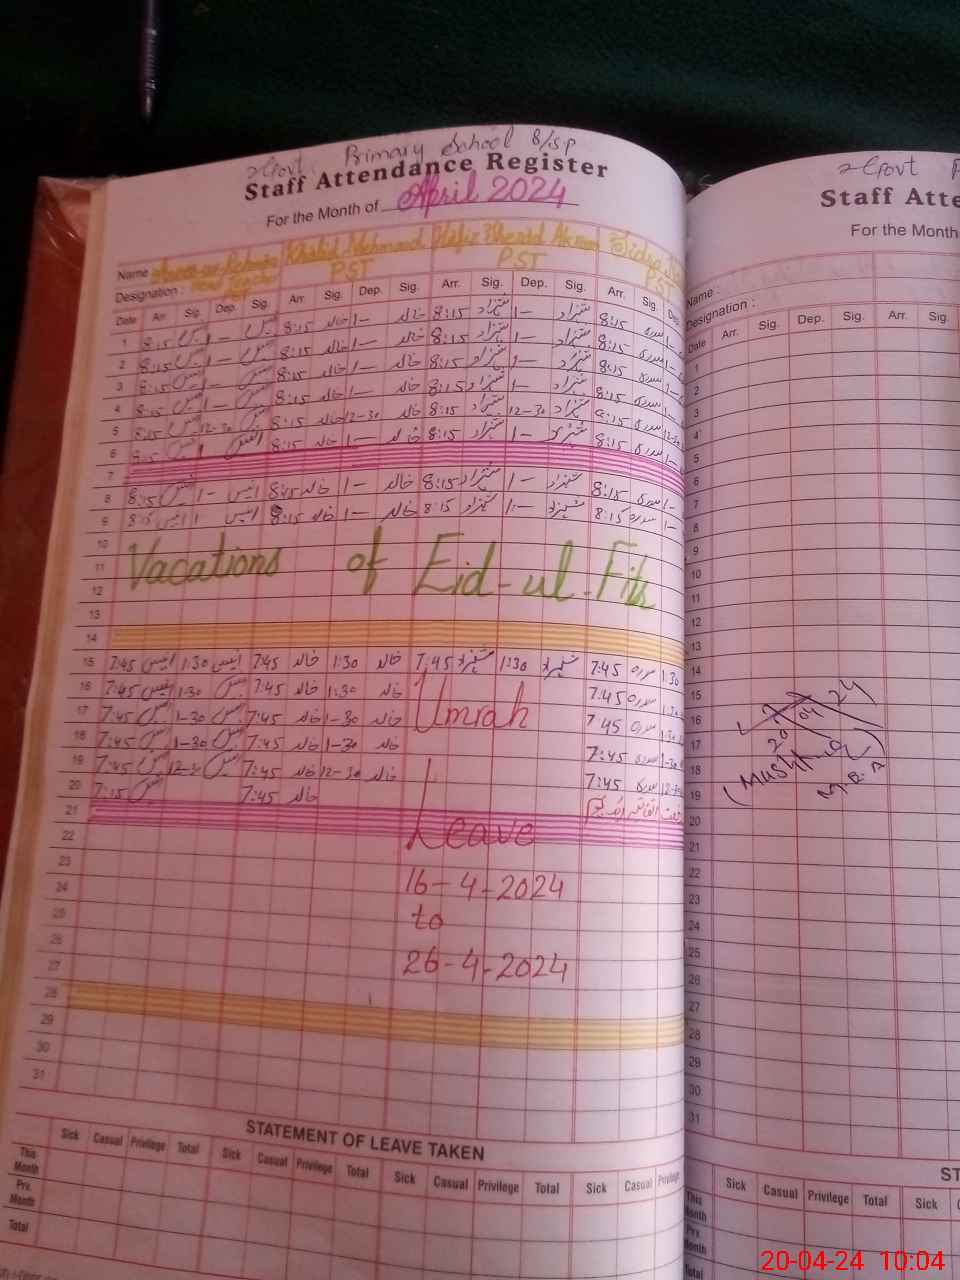 Govt Primary School 8/SP
Staff Attendance Register
For the Month of April 2024
Name Khalid Mehmood Hafiz Shahzad Akram Sidra
Designation : Head Teacher PST PST PST
Date Arr. Sig. Dep. Sig. Arr. Sig. Dep. Sig. Arr. Sig. Dep. Sig. Arr. Sig. Dep.
1 8:15 1— 8:15 خالد 1— خالد 8:15 شہزاد 1— شہزاد 8:15 سدرہ 1—
2 8:15 1— 8:15 خالد 1— خالد 8:15 شہزاد 1— شہزاد 8:15 سدرہ 1—
3 8:15 1— 8:15 خالد 1— خالد 8:15 شہزاد 1— شہزاد 8:15 سدرہ 1—
4 8:15 1— 8:15 خالد 1— خالد 8:15 شہزاد 1— شہزاد 8:15 سدرہ 1—
5 8:15 12-30 8:15 خالد 12-30 خالد 8:15 شہزاد 12-30 شہزاد 8:15 سدرہ 12-30
6 8:15 1 انیس 8:15 خالد 1— خالد 8:15 شہزاد 1— شہزاد 8:15 سدرہ 1—
7
8 8:15 انیس 1— انیس 8:15 خالد 1— خالد 8:15 شہزاد 1— شہزاد 8:15 سدرہ 1—
9 8:15 انیس 1 انیس 8:15 خالد 1— خالد 8:15 شہزاد 1:— شہزاد 8:15 سدرہ 1—
10
11 Vacations of Eid-ul-Fitr
12
13
14
15 7:45 انیس 1:30 انیس 7:45 خالد 1:30 خالد 7:45 شہزاد 1:30 شہزاد 7:45 سدرہ 1:30
16 7:45 انیس 1:30 انیس 7:45 خالد 1:30 خالد Umrah 7:45 سدرہ 1:30
17 7:45 انیس 1-30 انیس 7:45 خالد 1-30 خالد 7:45 سدرہ 1:30
18 7:45 انیس 1-30 انیس 7:45 خالد 1-30 خالد 7:45 سدرہ 1-30
19 7:45 انیس 7:45 خالد 12-30 خالد 7:45 سدرہ 12-30
20 7:15 انیس 7:45 خالد
21 Leave
22
23
24 16-4-2024
25 to
26
27 26-4-2024
28
29
30
31
STATEMENT OF LEAVE TAKEN
Sick Casual Privilege Total Sick Casual Privilege Total Sick Casual Privilege Total Sick Casual Privilege
This Month
Prv. Month
Total
Govt P
Staff Atte
For the Month
Name :
Designation :
Date Arr. Sig. Dep. Sig. Arr. Sig.
1
2
3
4
5
6
7
8
9
10
11
12
13
14
15
16
17
18
19
20
21
22
23
24
25
26
27
28
29
30
31
20 04 24
ST
Sick Casual Privilege Total Sick
This Month
Prv. Month
Total
20-04-24 10:04